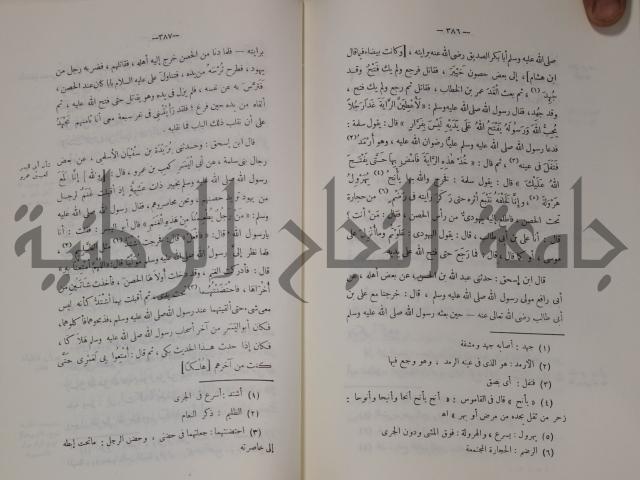 — ٣٨٦ —
صلى الله عليه وسلم أبا بكر الصديق رضى الله عنه برايته ، [وكانت بيضاء فيما قال
ابن هشام] ، إلى بعض حصون خَيْبَر ، فقاتل فرجع ولم يك فَتْحٌ وقد
جُهِد (١) ، ثم بعث الغد عمر بن الخطاب ، فقاتل ثم رجع ولم يك فتح ،
وقد جُهد ، فقال رسول الله صلى الله عليه وسلم : « لَأُعْطِيَنَّ الرَّايَةَ غَداً رَجُلاً
يُحِبُّ اللهَ وَرَسُولَهُ يَفْتَحُ اللهُ عَلَى يَدَيْهِ لَيْسَ بِفَرَّارٍ » قال : يقول سلمة :
فدعا رسول الله صلى الله عليه وسلم عليًّا رضوان الله عليه ، وهو أرمَدُ (٢)
فَتَفَلَ فى عينه (٣) ، ثم قال : « خُذْ هٰذِهِ الرَّايَةَ فَامْضِ بِهَا حَتَّى يَفْتَحَ
اللهُ عَلَيْكَ » قال : يقول سلمة : فخرج والله بها يأنح (٤) يُهَرْوِلُ
هَرْوَلَةً (٥) ، وإنا خَلْفَه نَتَّبع أثره حتى رَكز رايته فى رَضْم (٦) من حجارة
تحت الحصن ، فاطلع إليه يهودى من رأس الحصن ، فقال : مَنْ أنت ؟
قال : أنا على بن أبى طالب ، قال : يقول اليهودى : عَلَوْتُمْ وما أنزل على
موسى ، أو كما قال ، قال : فما رَجَعَ حتى فتح الله على يديه
قال ابن إسحق : حدثنى عبد الله بن الحسن ، عن بعض أهله ، عن
أبى رافع مولى رسول الله صلى الله عليه وسلم ، قال : خرجنا مع على بن
أبى طالب رضى الله تعالى عنه — حين بعثه رسول الله صلى الله عليه وسلم
(١) جهد : أصابه جهد ومشقة
(٢) الأرمد : هو الذى فى عينه الرمد ، وهو وجع فيها
(٣) فتفل : أى بصق
(٤) « يأنح » قال فى القاموس : « أنح يأنح أنحا وأنيحا وأنوحا :
زحر من ثقل يجده من مرض أو بهر » اهـ
(٥) يهرول : يسرع ، والهرولة : فوق المشى ودون الجرى
(٦) الرضم : الحجارة المجتمعة
— ٣٨٧ —
برايته — فلما دنا من الحصن خرج إليه أهله ، فقاتلهم ، فضربه رجل من
يهود ، فطرح تُرْسَهُ من يده ، فتناول على عليه السلام بابًا كان عند الحصن ،
فَتَرَّسَ به عن نفسه ، فلم يزل فى يده وهو يقاتل حتى فتح الله عليه ، ثم
ألقاه من يده حين فرغ ؛ فلقد رَأَيْتُنِى فى نفر سبعة معى أنا ثامنهم نَجْهَدُ
على أن نقلب ذلك الباب فما نقلبه .
قال ابن إسحق : وحدثنى بُرَيْدَة بن سُفْيَان الأسلمى ، عن بعض
رجال بنى سلمة ، عن أبى اليَسَر كعب بن عمرو ، قال : [والله] إنَّا لَمَعَ
رسول الله صلى الله عليه وسلم بخيبر ذات عشيةٍ إذ أقبلت غنم لرجل
من يهود تريد حصنهم ، ونحن محاصروهم ، فقال رسول الله صلى الله عليه
وسلم : « مَنْ رَجُلٌ يُطْعِمُنَا مِنْ هٰذِهِ الْغَنَمِ » قال أبو اليسر : فقلت : أنا
يارسول الله ، قال : « فافعل » قال : فخرجت أشتد (١) مثل الظليم (٢) ،
فلما نظر إلى رسول الله صلى الله عليه وسلم
قال : فأدركت الغنم وقد دخلت أولاها الحصن ، فأخذت شاتين من
أخراها ، فاحتضنتهما (٣) تحت يدى ، ثم أقبلت بهما أشتد كأنه ليس
معى شىء ، حتى ألقيتهما عند رسول الله صلى الله عليه وسلم ، فذبحوهما فأكلوهما ،
فكان أبو اليَسَر من آخر أصحاب رسول الله صلى الله عليه وسلم هلاكا ،
فكان إذا حدث هذا الحديث بكى ، ثم قال : أُمْتِعُوا بى لعَمْرِى حَتَّى
كنت من آخرهم [هُلْكًا]
شأن أبى اليسر
كعب بن عمرو
(١) أشتد : أسرع فى الجرى
(٢) الظليم : ذكر النعام
(٣) احتضنتهما : جعلتهما فى حضنى ، وحضن الرجل : ماتحت إبطه
إلى خاصرته
جامعة النجاح الوطنية